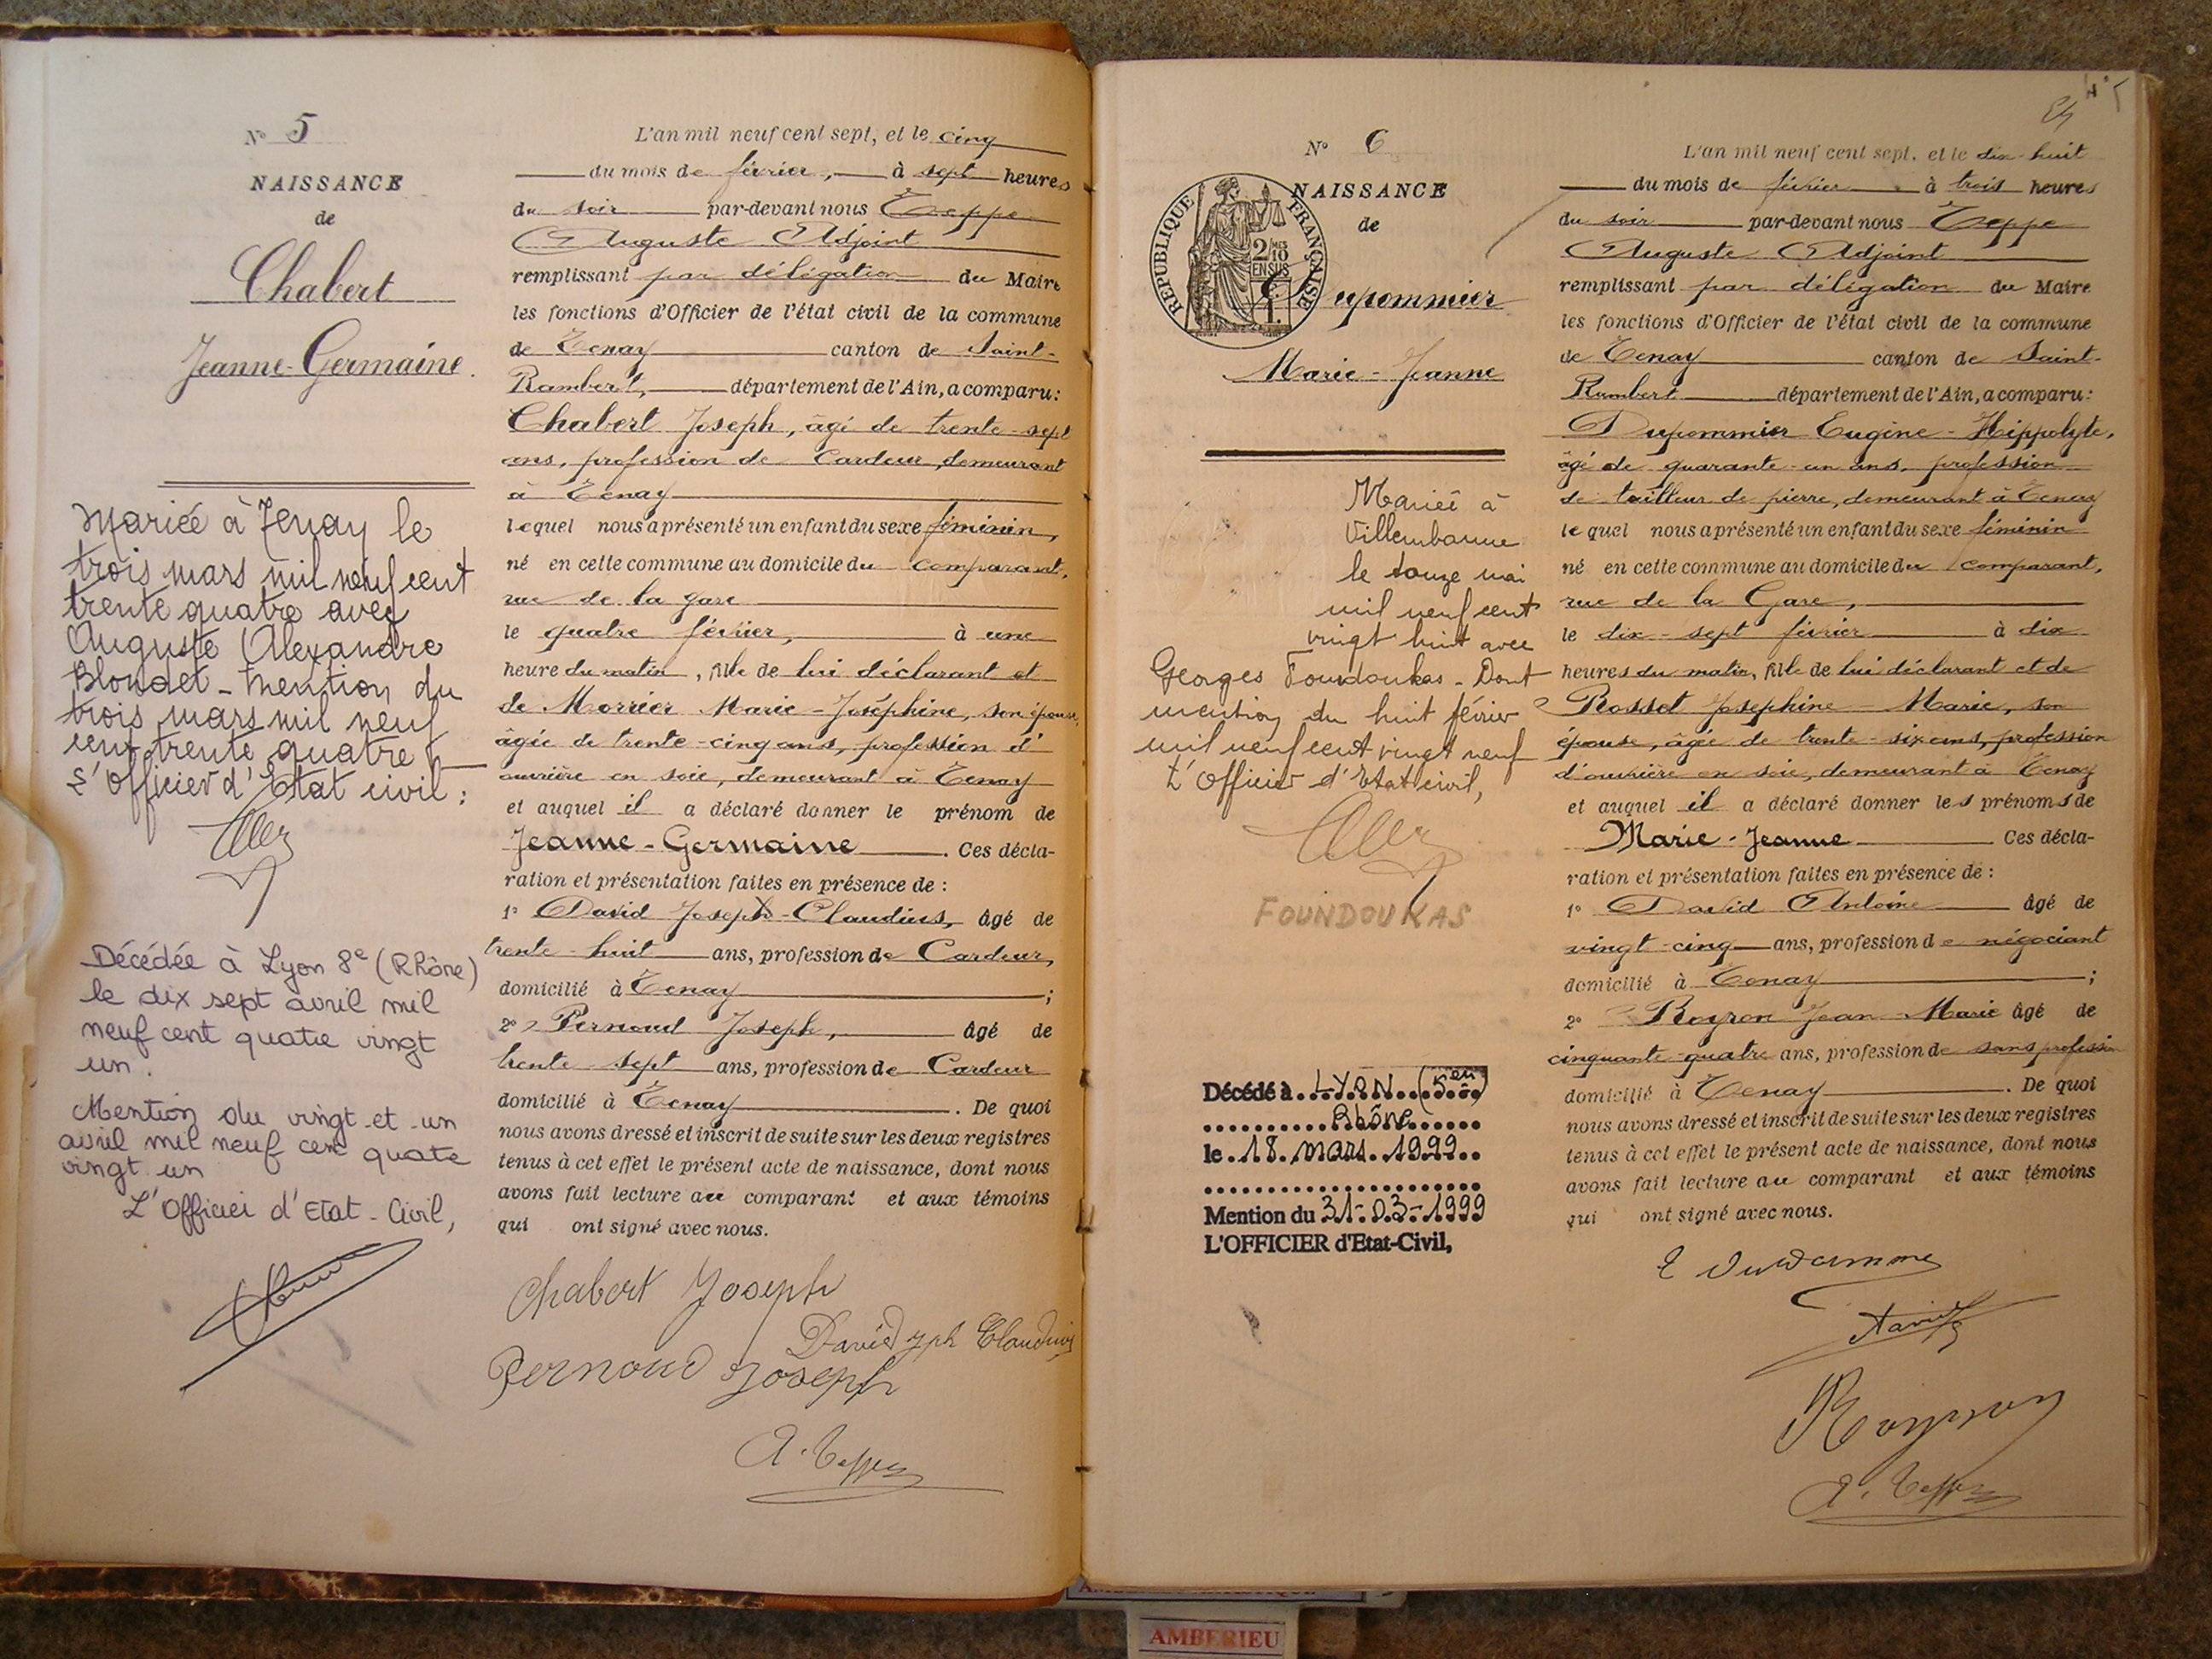 N° 5
NAISSANCE
de
Chabert
Jeanne-Germaine.
Mariée à Tenay le
trois mars mil neuf cent
trente quatre avec
Auguste Alexandre
Blondet - Mention du
trois mars mil neuf
cent trente quatre
L'Officier d'Etat civil :
Décédée à Lyon 8e (Rhône)
le dix sept avril mil
neuf cent quatre vingt
un.
Mention du vingt et un
avril mil neuf cent quate
vingt un
L'Officier d'Etat-Civil,
L'an mil neuf cent sept, et le cinq
du mois de février, à sept heures
du soir par-devant nous Teppe
Auguste Adjoint
remplissant par délégation du Maire
les fonctions d'Officier de l'état civil de la commune
de Tenay canton de Saint-
Rambert, département de l'Ain, a comparu :
Chabert Joseph, âgé de trente-sept
ans, profession de Cardeur, demeurant
à Tenay
lequel nous a présenté un enfant du sexe féminin,
né en cette commune au domicile du comparant,
rue de la gare
le quatre février, à une
heure du matin, fille de lui déclarant et
de Morrier Marie-Joséphine, son épouse,
âgée de trente-cinq ans, profession d'
ouvrière en soie, demeurant à Tenay
et auquel il a déclaré donner le prénom de
Jeanne-Germaine. Ces décla-
ration et présentation faites en présence de :
1° David Joseph-Claudius, âgé de
trente-huit ans, profession de Cardeur,
domicilié à Tenay ;
2° Pernoud Joseph, âgé de
trente-sept ans, profession de Cardeur
domicilié à Tenay. De quoi
nous avons dressé et inscrit de suite sur les deux registres
tenus à cet effet le présent acte de naissance, dont nous
avons fait lecture au comparant et aux témoins
qui ont signé avec nous.
Chabert Joseph
David Jph Claudius
Pernoud Joseph
A. Teppe
N° 6
NAISSANCE
de
REPUBLIQUE FRANÇAISE
2/10 MES
EN SUS
Dupommier
Marie-Jeanne
Mariée à
Villeurbanne
le douze mai
mil neuf cent
vingt huit avec
Georges Foundoukas - Dont
mention du huit février
mil neuf cent vingt neuf
L'Officier d'Etat civil,
FOUNDOUKAS
Décédé à LYON (5en)
Rhône
le 18 mars 1999
Mention du 31-03-1999
L'OFFICIER d'Etat-Civil,
L'an mil neuf cent sept, et le dix-huit
du mois de février à trois heures
du soir par-devant nous Teppe
Auguste Adjoint
remplissant par délégation du Maire
les fonctions d'Officier de l'état civil de la commune
de Tenay canton de Saint-
Rambert département de l'Ain, a comparu :
Dupommier Eugène-Hippolyte,
âgé de quarante-un ans, profession
de tailleur de pierre, demeurant à Tenay
lequel nous a présenté un enfant du sexe féminin
né en cette commune au domicile du comparant,
rue de la Gare,
le dix-sept février à dix
heures du matin, fille de lui déclarant et de
Rosset Josephine-Marie, son
épouse, âgée de trente-six ans, profession
d'ouvrière en soie, demeurant à Tenay
et auquel il a déclaré donner les prénoms de
Marie-Jeanne Ces décla-
ration et présentation faites en présence de :
1° David Antoine âgé de
vingt-cinq ans, profession de négociant
domicilié à Tenay ;
2° Royron Jean-Marie âgé de
cinquante-quatre ans, profession de sans profession
domicilié à Tenay. De quoi
nous avons dressé et inscrit de suite sur les deux registres
tenus à cet effet le présent acte de naissance, dont nous
avons fait lecture au comparant et aux témoins
qui ont signé avec nous.
David
Royron
A. Teppe
AMBERIEU